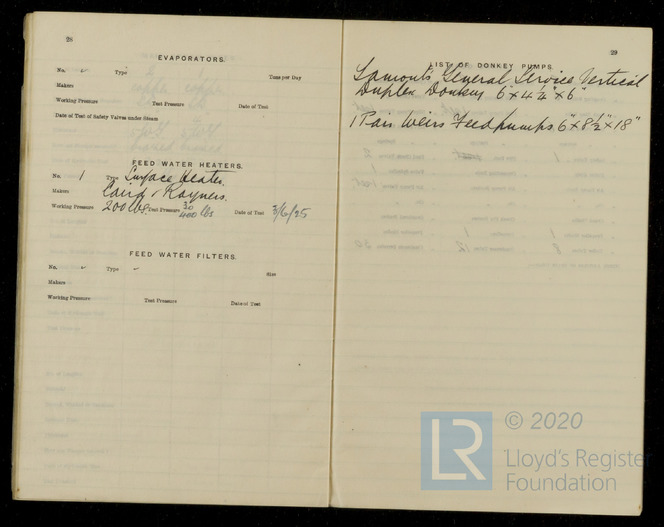 28
EVAPORATORS.
No. ✓ Type Tons per Day
Makers
Working Pressure Test Pressure Date of Test
Date of Test of Safety Valves under Steam
FEED WATER HEATERS.
No. 1 Type Surface Heater.
Makers Caird & Rayners.
Working Pressure 200 lbs Test Pressure 400 lbs Date of Test 3/6/25
FEED WATER FILTERS.
No. ✓ Type ✓ Size
Makers
Working Pressure Test Pressure Date of Test
29
LIST OF DONKEY PUMPS.
Lamont's General Service Vertical
Duplex Donkey 6" x 4 1/4" x 6"
1 Pair Weirs Feed pumps. 6" x 8 1/2" x 18"
LR
© 2020
Lloyd's Register
Foundation